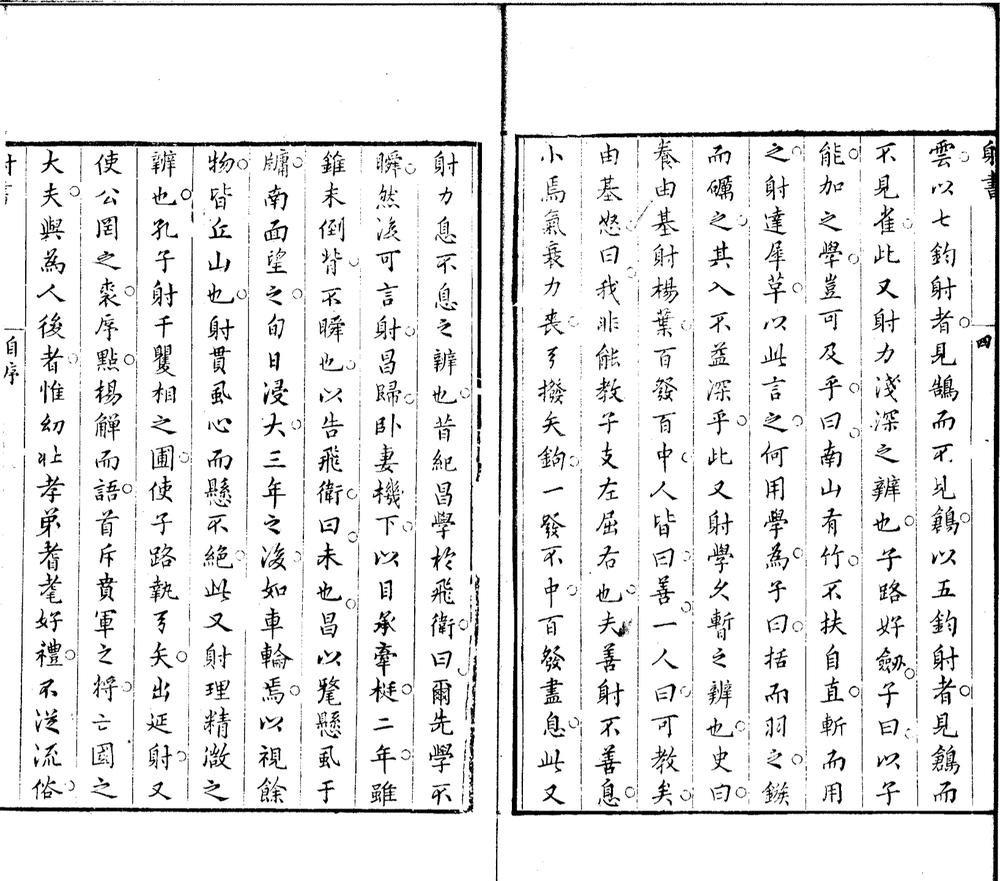 射書
四
雲以七鈞射者見鵠而不見鶬以五鈞射者見鶬而
不見雀此又射力淺深之辨也子路好劔子曰以子
能加之學豈可及乎曰南山有竹不扶自直斬而用
之射達犀革以此言之何用學為子曰括而羽之鏃
而礪之其入不益深乎此又射學久暫之辨也史曰
養由基射楊葉百發百中人皆曰善一人曰可教矣
由基怒曰我非能教子支左屈右也夫善射不善息
小焉氣衰力喪弓撥矢鉤一發不中百發盡息此又
射力息不息之辨也昔紀昌學於飛衛曰爾先學不
瞬然後可言射昌歸卧妻機下以目承牽梃二年雖
錐末倒眥不瞬也以告飛衛曰未也昌以氂懸虱于
牖南面望之旬日浸大三年之後如車輪焉以視餘
物皆丘山也射貫虱心而懸不絕此又射理精微之
辨也孔子射于矍相之圃使子路執弓矢出延射又
使公罔之裘序點揚觶而語首斥賁軍之將亡國之
大夫與為人後者惟幼壯孝弟耆耄好禮不從流俗
自序